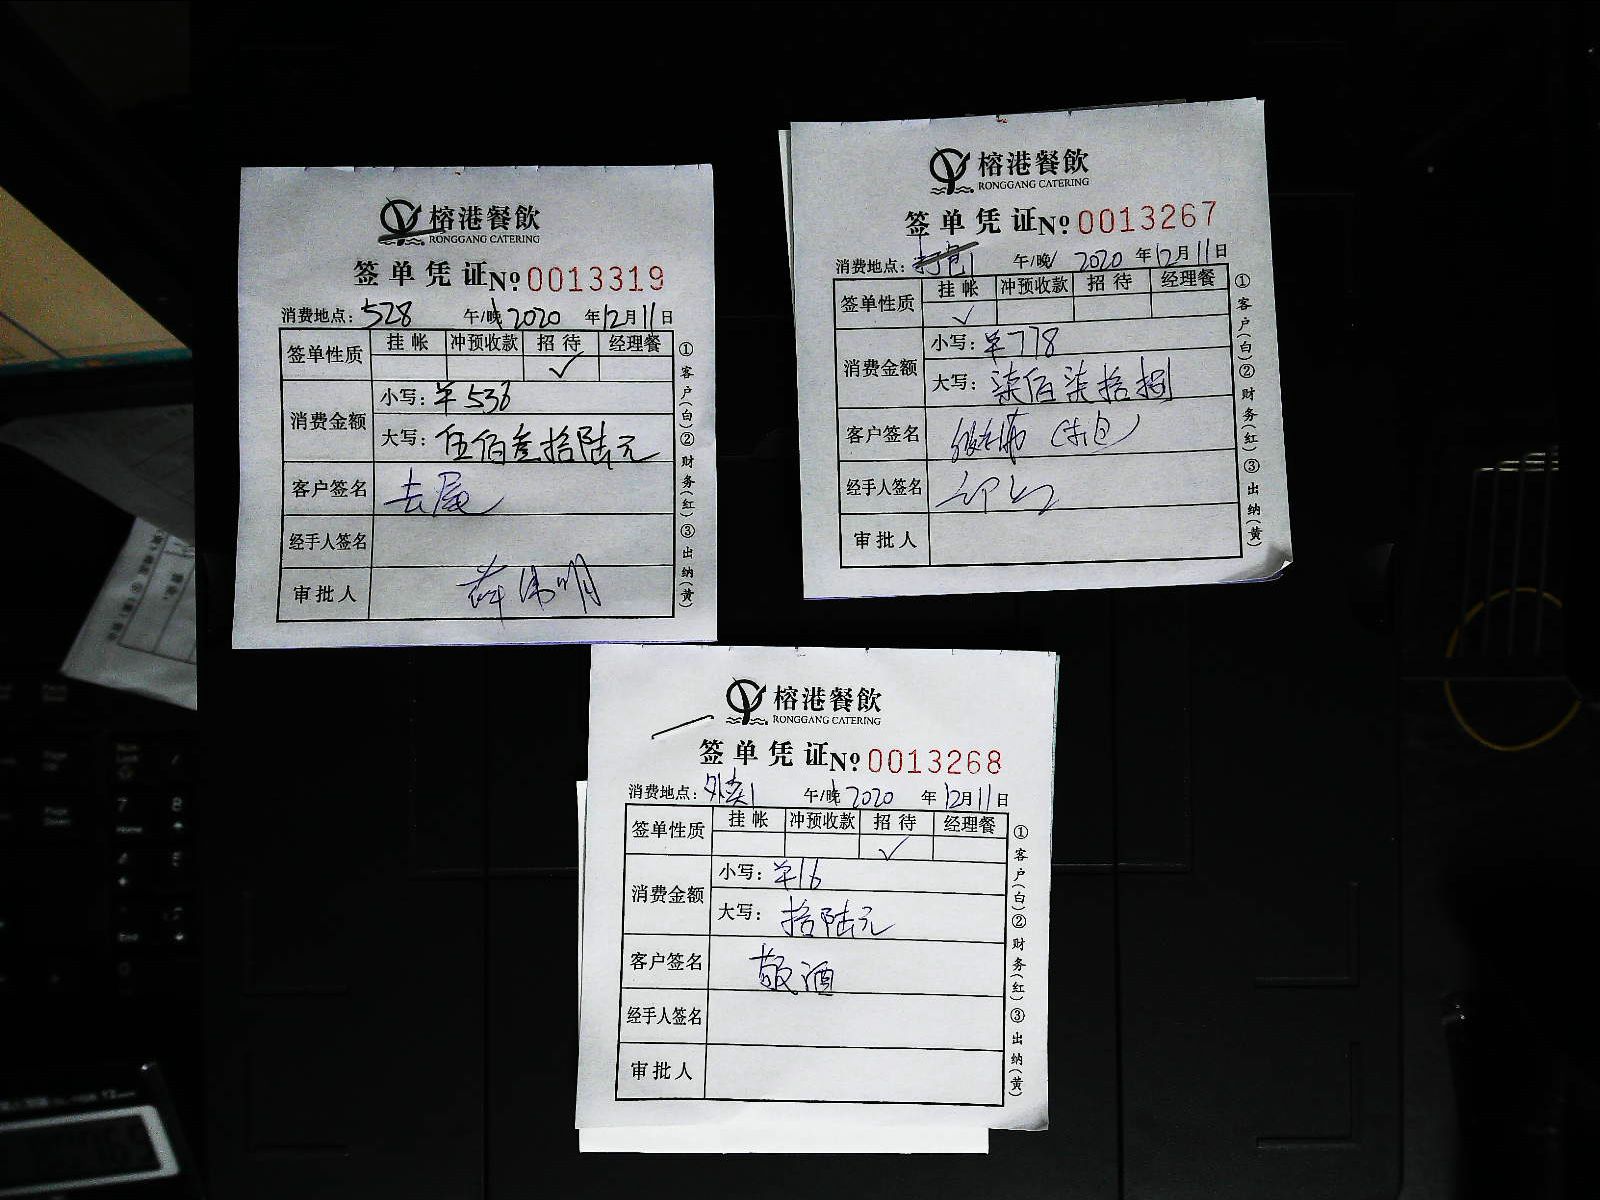 榕港餐飲
RONGGANG CATERING
签单凭证 Nº 0013319
消费地点：528 午/晚 2020 年 12 月 11 日
签单性质 挂帐 冲预收款 招待 经理餐
✓
消费金额
小写：￥536
大写：伍佰叁拾陆元
客户签名 去尾
经手人签名
审批人
①客户(白)②财务(红)③出纳(黄)
榕港餐飲
RONGGANG CATERING
签单凭证 Nº 0013267
消费地点： 午/晚 2020 年 12 月 11 日
签单性质 挂帐 冲预收款 招待 经理餐
✓
消费金额
小写：￥778
大写：柒佰柒拾捌
客户签名
经手人签名
审批人
①客户(白)②财务(红)③出纳(黄)
榕港餐飲
RONGGANG CATERING
签单凭证 Nº 0013268
消费地点：外卖1 午/晚 2020 年 12 月 11 日
签单性质 挂帐 冲预收款 招待 经理餐
✓
消费金额
小写：￥16
大写：拾陆元
客户签名 敬酒
经手人签名
审批人
①客户(白)②财务(红)③出纳(黄)